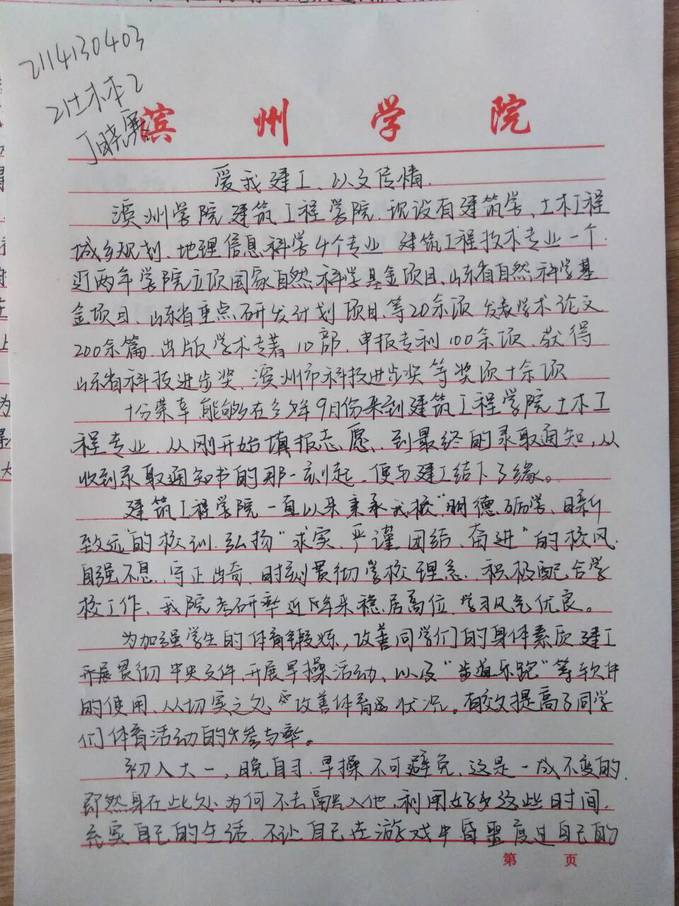 2114130403
21土木本2
丁晓
滨州学院
爱我建工、以文传情.
滨州学院建筑工程学院,现设有建筑学、土木工程
城乡规划、地理信息科学4个专业 建筑工程技术专业一个.
近两年学院立项国家自然科学基金项目、山东省自然科学基
金项目、山东省重点研发计划项目等20余项 发表学术论文
200余篇、出版学术专著10部、申报专利100余项、获得
山东省科技进步奖、滨州市科技进步奖等奖项十余项
十分荣幸能够在今年9月份来到建筑工程学院土木工
程专业、从刚开始填报志愿、到最终的录取通知,从
收到录取通知书的那一刻起,便与建工结下了缘。
建筑工程学院一直以来秉承我校“明德砺学、日新
致远”的校训、弘扬“求实、严谨、团结、奋进”的校风.
自强不息、守正出奇、时刻贯彻学校理念、积极配合学
校工作、我院考研率近年来稳居高位,学习风气优良。
为加强学生的体育锻炼,改善同学们的身体素质建工
开展贯彻中央文件、开展早操活动、以及“步道乐跑”等软件
的使用、从切实之处 改善体育 状况。有效提高了同学
们体育活动的 参与率。
初入大一,晚自习、早操不可避免、这是一成不变的.
即然身在此处、为何不去融入他、利用好 这些时间.
充实自己的生活、不让自己在游戏中昏噩度过自己的
第 页